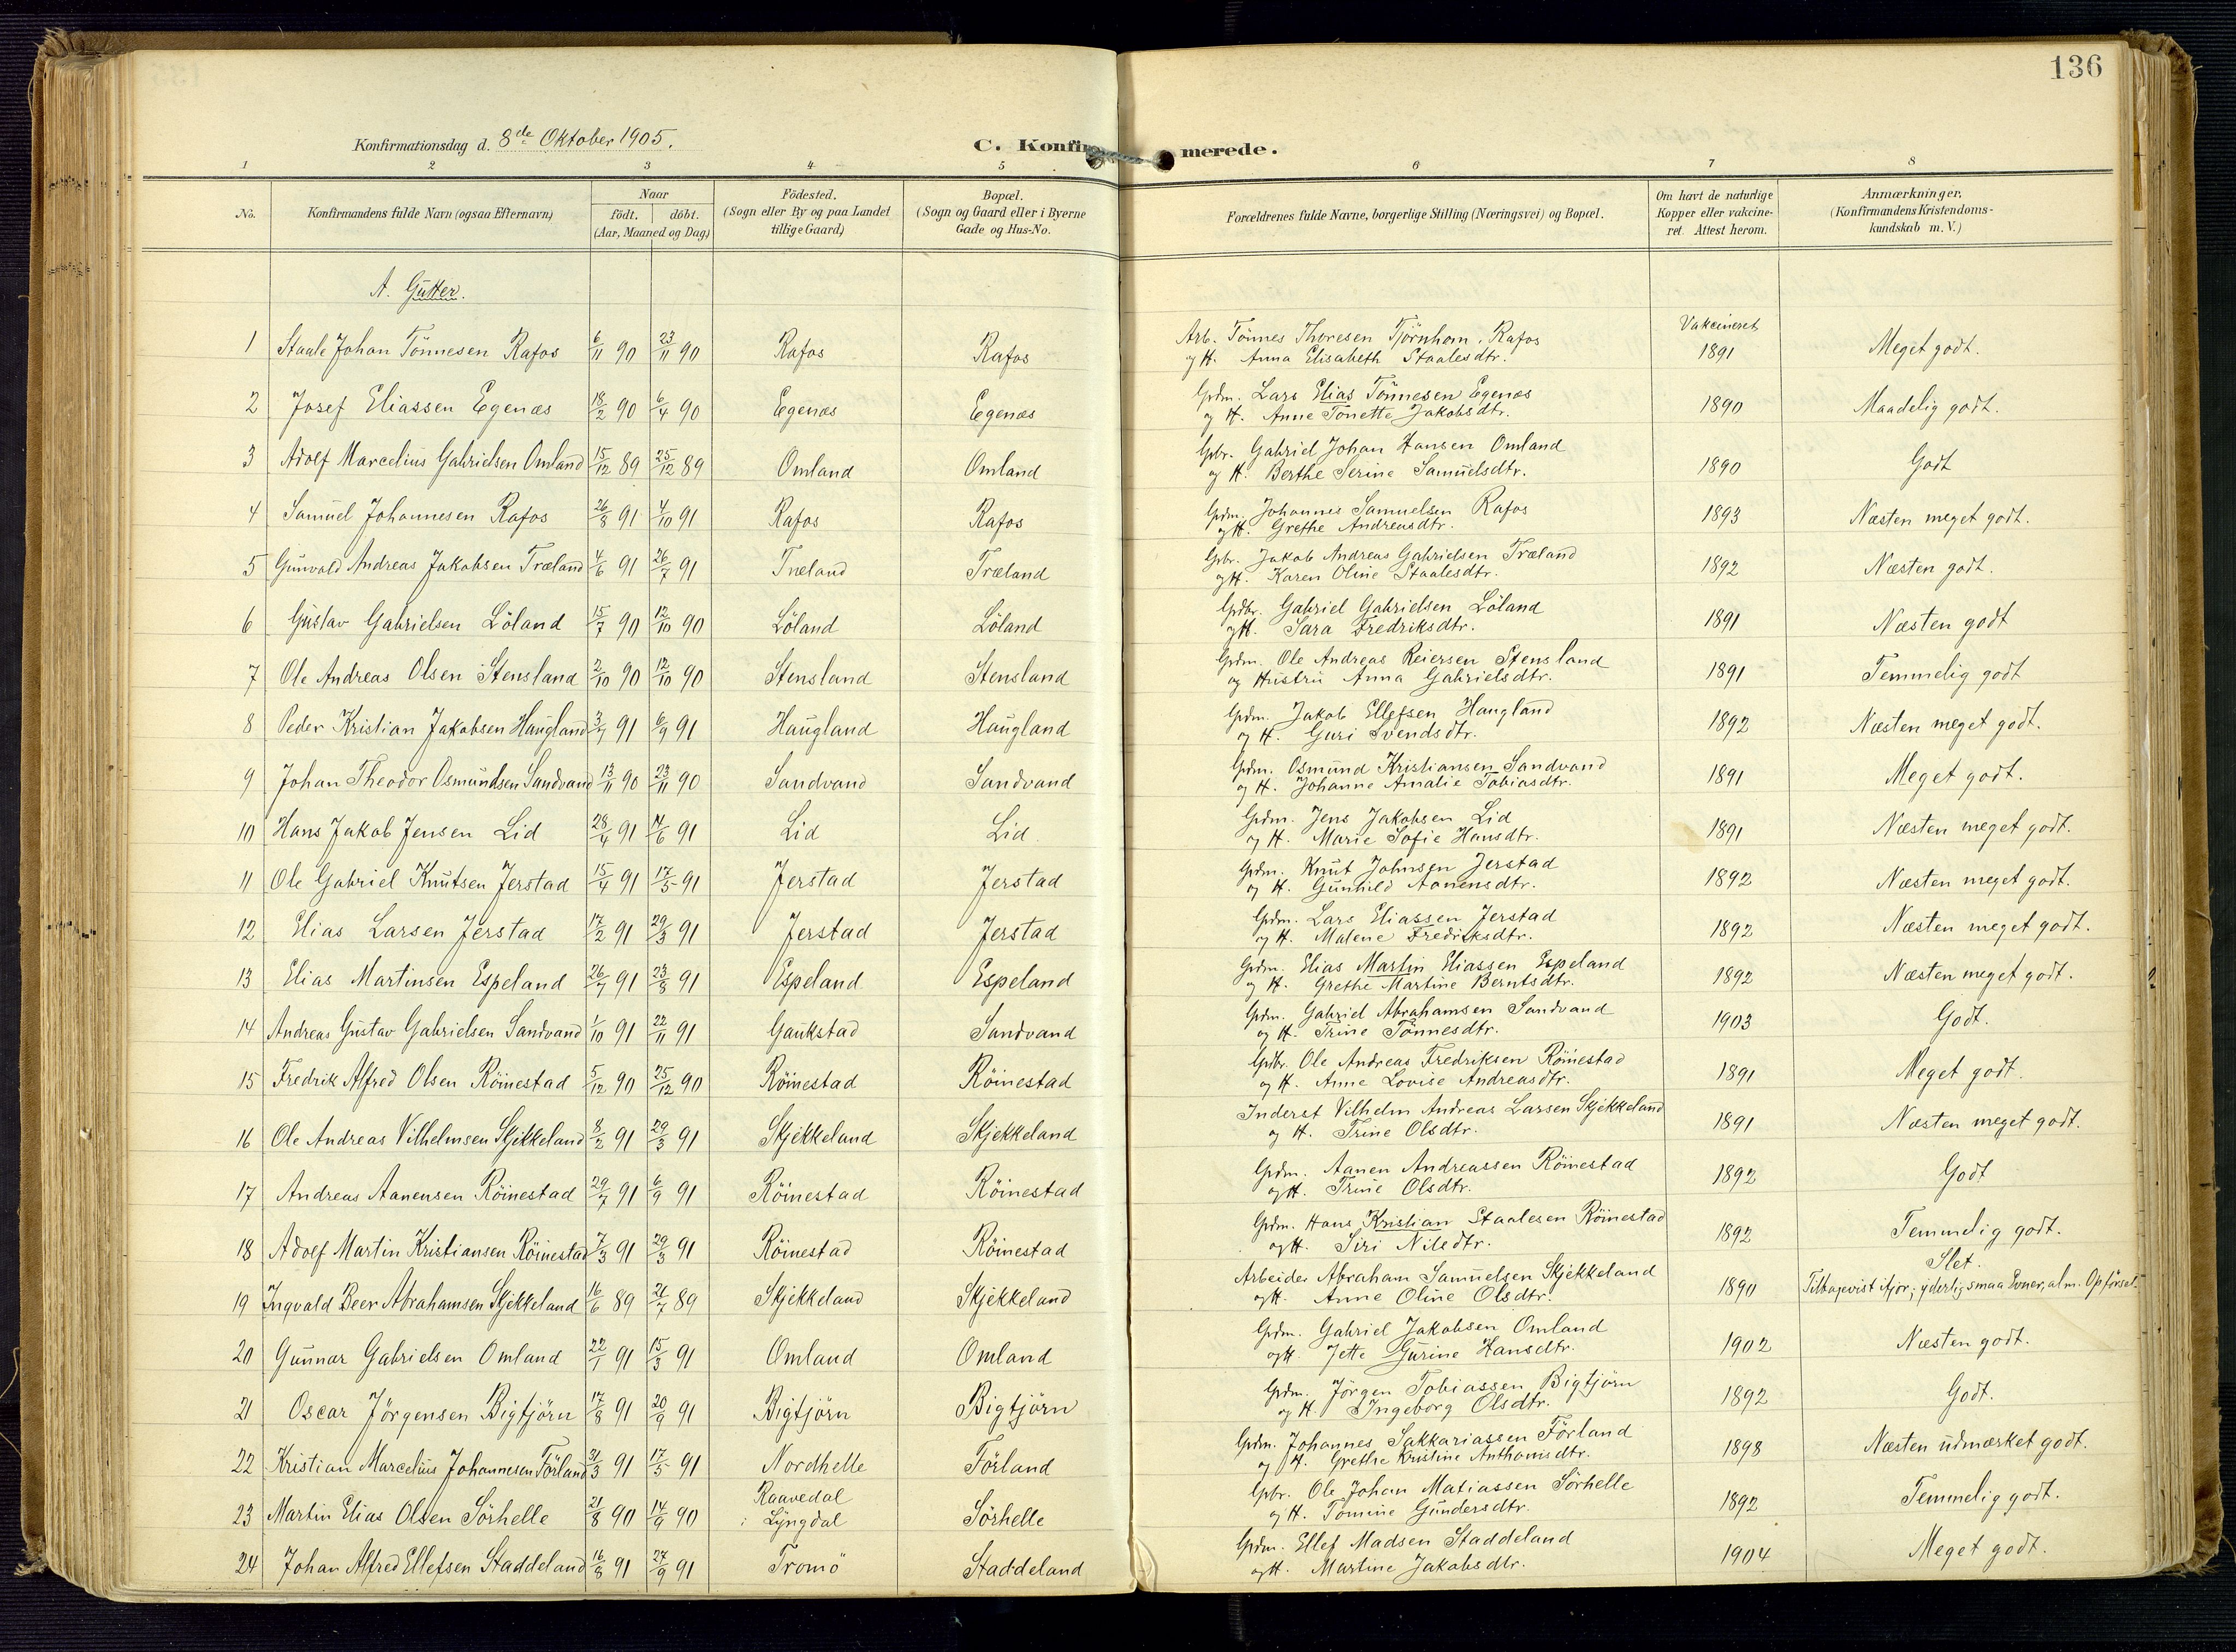 136
Konfirmationsdag d. 8de Oktober 1905.
C. Konfirmerede.
1 2 3 4 5 6 7 8
No.
Konfirmandens fulde Navn (ogsaa Efternavn)
Naar
födt. döbt.
(Aar, Maaned og Dag)
Födested.
(Sogn eller By og paa Landet
tillige Gaard)
Bopæl.
(Sogn og Gaard eller i Byerne
Gade og Hus-No.
Forældrenes fulde Navne, borgerlige Stilling (Næringsvei) og Bopæl.
Om havt de naturlige
Kopper eller vakcine-
ret. Attest herom.
Anmærkninger.
(Konfirmandens Kristendoms-
kundskab m. V.)
A. Gutter.
Vakcineret
1 Staale Johan Tönnesen Rafos 6/11 90 23/11 90 Rafos Rafos Arb. Tönnes Thoresen Tjörnhom, Rafos 1891 Meget godt.
og H. Anna Elisabeth Staalesdtr.
2 Josef Eliassen Egenæs 18/2 90 6/4 90 Egenæs Egenæs Gdm. Lars Elias Tönnesen Egenæs 1890 Maadelig godt.
og H. Anne Tonette Jakobsdtr.
3 Adolf Marcelius Gabrielsen Omland 15/12 89 25/12 89 Omland Omland Gbr. Gabriel Johan Hansen Omland 1890 Godt
og H. Berthe Serine Samuelsdtr.
4 Samuel Johannesen Rafos 26/8 91 4/10 91 Rafos Rafos Gdm. Johannes Samuelsen Rafos 1893 Næsten meget godt.
og H. Grethe Andreasdtr.
5 Gunvald Andreas Jakobsen Træland 4/6 91 26/7 91 Træland Træland Gbr. Jakob Andreas Gabrielsen Træland 1892 Næsten godt.
og H. Karen Oline Staalesdtr.
6 Gustav Gabrielsen Löland 15/7 90 12/10 90 Löland Löland Gdbr. Gabriel Gabrielsen Löland 1891 Næsten godt
og H. Sara Fredriksdtr.
7 Ole Andreas Olsen Stensland 2/10 90 12/10 90 Stensland Stensland Gdm. Ole Andreas Reiersen Stensland 1891 Temmelig godt
og Hustru Anna Gabrielsdtr.
8 Peder Kristian Jakobsen Haugland 3/7 91 6/9 91 Haugland Haugland Gdm. Jakob Ellefsen Haugland 1892 Næsten meget godt.
og H. Guri Svendsdtr.
9 Johan Theodor Osmundsen Sandvand 13/11 90 23/11 90 Sandvand Sandvand Gdm. Osmund Kristiansen Sandvand 1891 Meget godt.
og H. Johanne Amalie Tobiasdtr.
10 Hans Jakob Jensen Lid 28/4 91 14/6 91 Lid Lid Gdm. Jens Jakobsen Lid 1891 Næsten meget godt.
og H. Marie Sofie Hansdtr.
11 Ole Gabriel Knutsen Jerstad 15/4 91 17/5 91 Jerstad Jerstad Gdm. Knut Johnsen Jerstad 1892 Næsten meget godt.
og H. Gunhild Aanensdtr.
12 Elias Larsen Jerstad 17/2 91 29/3 91 Jerstad Jerstad Gdm. Lars Eliassen Jerstad 1892 Næsten meget godt.
og H. Malene Fredriksdtr.
13 Elias Martinsen Espeland 26/7 91 23/8 91 Espeland Espeland Gdm. Elias Martin Eliassen Espeland 1892 Næsten meget godt.
og H. Grethe Martine Berntsdtr.
14 Andreas Gustav Gabrielsen Sandvand 1/10 91 22/11 91 Gaukstad Sandvand Gdm. Gabriel Abrahamsen Sandvand 1903 Godt.
og H. Trine Tönnesdtr.
15 Fredrik Alfred Olsen Röinestad 5/12 90 25/12 90 Röinestad Röinestad Gdbr. Ole Andreas Fredriksen Röinestad 1891 Meget godt.
og H. Anne Lovise Andreasdtr.
16 Ole Andreas Vilhelmsen Skjekkeland 8/2 91 29/3 91 Skjekkeland Skjekkeland Inderst Vilhelm Andreas Larsen Skjekkeland 1891 Næsten meget godt.
og H. Trine Olsdtr.
17 Andreas Aanensen Röinestad 29/7 91 6/9 91 Röinestad Röinestad Gdm. Aanen Andreassen Röinestad 1892 Godt
og H. Trine Olsdtr.
18 Adolf Martin Kristiansen Röinestad 7/3 91 29/3 91 Röinestad Röinestad Gdm. Hans Kristian Staalesen Röinestad 1892 Temmelig godt.
og H. Siri Nilsdtr.
Slet.
19 Ingvald Beer Abrahamsen Skjekkeland 16/6 89 21/7 89 Skjekkeland Skjekkeland Arbeider Abraham Samuelsen Skjekkeland 1890 Tilbagevist ifjor; yderlig smaa Evner, alm. Opförsel.
og H. Anne Oline Olsdtr.
20 Gunnar Gabrielsen Omland 22/1 91 15/3 91 Omland Omland Gdm. Gabriel Jakobsen Omland 1902 Næsten godt.
og H. Jette Gurine Hansdtr.
21 Oscar Jörgensen Bigtjörn 17/8 91 20/9 91 Bigtjörn Bigtjörn Gdm. Jörgen Tobiassen Bigtjörn 1892 Godt.
og H. Ingeborg Olsdtr.
22 Kristian Marcelius Johannesen Förland 31/3 91 17/5 91 Nordhelle Förland Gdm. Johannes Sakkariassen Förland 1898 Næsten udmærket godt.
og H. Grethe Kristine Anthonisdtr.
23 Martin Elias Olsen Sörhelle 21/8 90 14/9 90 Raavedal i Lyngdal Sörhelle Gbr. Ole Johan Matiassen Sörhelle 1892 Temmelig godt.
og H. Tomine Gundersdtr.
24 Johan Alfred Ellefsen Staddeland 16/8 91 27/9 91 Tromö Staddeland Gdm. Ellef Madsen Staddeland 1904 Meget godt.
og H. Martine Jakobsdtr.